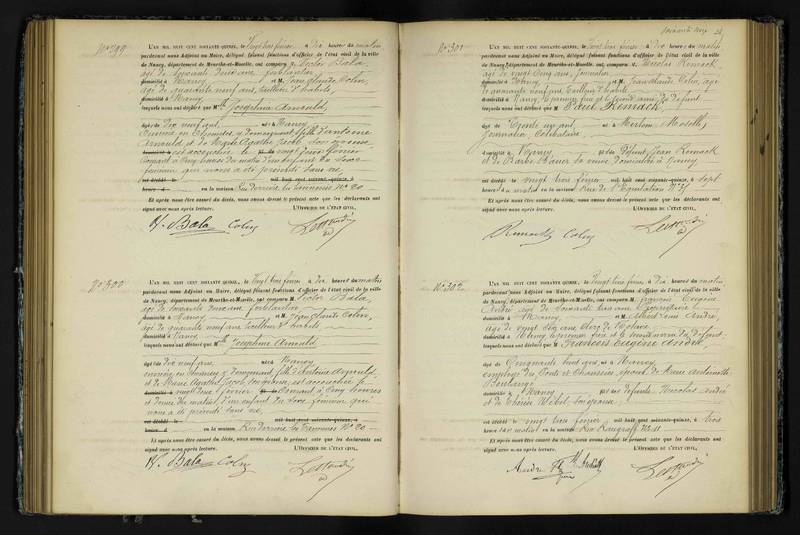 N° 299
L'AN MIL HUIT CENT SOIXANTE-QUINZE, le Vingt trois février, à Dix heures du matin
pardevant nous Adjoint au Maire, délégué faisant fonctions d'officier de l'état civil de la ville
de Nancy, département de Meurthe-et-Moselle, ont comparu M. Victor Bala,
âgé de soixante deux ans, ferblantier
domicilié à Nancy et M. Jean Claude Colin,
âgé de quarante neuf ans, tailleur d'habits,
domicilié à Nancy
lesquels nous ont déclaré que M Joséphine Arnould,
âgée de Dix neuf ans, née à Nancy
Ouvrière en Chemises, y domiciliée, fille d'Antoine
Arnould et de Marie Agathe Jacob, son épouse
est accouchée le vingt deux février
Courant à Cinq heures du matin d'un enfant du sexe
féminin que nous a été présenté sans vie,
est décédé le mil huit cent soixante-quinze, à
heure d en la maison Rue Derrière les Tanneries N° 20
Et après nous être assuré du décès, nous avons dressé le présent acte que les déclarants ont
signé avec nous après lecture. L'OFFICIER DE L'ÉTAT CIVIL,
V. Bala Colin
N° 300
L'AN MIL HUIT CENT SOIXANTE-QUINZE, le Vingt trois février, à Dix heures du matin
pardevant nous Adjoint au Maire, délégué faisant fonctions d'officier de l'état civil de la ville
de Nancy, département de Meurthe-et-Moselle, ont comparu M. Victor Bala,
âgé de soixante deux ans, ferblantier
domicilié à Nancy et M. Jean Claude Colin,
âgé de quarante neuf ans, tailleur d'habits
domicilié à Nancy
lesquels nous ont déclaré que M Joséphine Arnould
âgée de Dix neuf ans, née à Nancy
ouvrière en Chemises, y domiciliée, fille d'Antoine Arnould
et de Marie Agathe Jacob, son épouse, est accouchée le
vingt deux février Courant à Cinq heures
et demie du matin, d'un enfant du sexe féminin que
nous a été présenté sans vie,
est décédé le mil huit cent soixante-quinze, à
heure d en la maison Rue Derrière les Tanneries N° 20
Et après nous être assuré du décès, nous avons dressé le présent acte que les déclarants ont
signé avec nous après lecture. L'OFFICIER DE L'ÉTAT CIVIL,
V. Bala Colin
N° 301
L'AN MIL HUIT CENT SOIXANTE-QUINZE, le Vingt trois février à Dix heures du matin
pardevant nous Adjoint au Maire, délégué faisant fonctions d'officier de l'état civil de la ville
de Nancy, département de Meurthe-et-Moselle, ont comparu M. Nicolas Remack,
âgé de vingt cinq ans, journalier
domicilié à Nancy et M. Jean Claude Colin, âgé
de quarante neuf ans, tailleur d'habits
domicilié à Nancy, le premier frère et le second ami du défunt
lesquels nous ont déclaré que M Remack
âgé de Trente un ans né à Moselle,
journalier, Célibataire
domicilié à Nancy fils de défunt Jean Remack
et de Barbe Bauer sa veuve domiciliée à Nancy
est décédé le vingt trois février mil huit cent soixante-quinze, à sept
heures du matin en la maison Rue de
Et après nous être assuré du décès, nous avons dressé le présent acte que les déclarants ont
signé avec nous après lecture. L'OFFICIER DE L'ÉTAT CIVIL,
Remack Colin
N° 302
L'AN MIL HUIT CENT SOIXANTE-QUINZE, le Vingt trois février, à Dix heures du matin
pardevant nous Adjoint au Maire, délégué faisant fonctions d'officier de l'état civil de la ville
de Nancy, département de Meurthe-et-Moselle, ont comparu M. François Eugène
André, âgé de
domicilié à Nancy et M. Albert
âgé de vingt six ans, Clerc de Notaire
domicilié à Nancy, le premier et le second du défunt
lesquels nous ont déclaré que M François Eugène André
âgé de Cinquante huit ans, né à Nancy,
employé des Ponts et Chaussées, époux de Anne Antoinette
Boulangé
domicilié à Nancy fils des défunts Nicolas André
et de Thérèse son épouse
est décédé le vingt trois février mil huit cent soixante-quinze, à trois
heures du matin en la maison Rue
Et après nous être assuré du décès, nous avons dressé le présent acte que les déclarants ont
signé avec nous après lecture. L'OFFICIER DE L'ÉTAT CIVIL,
André